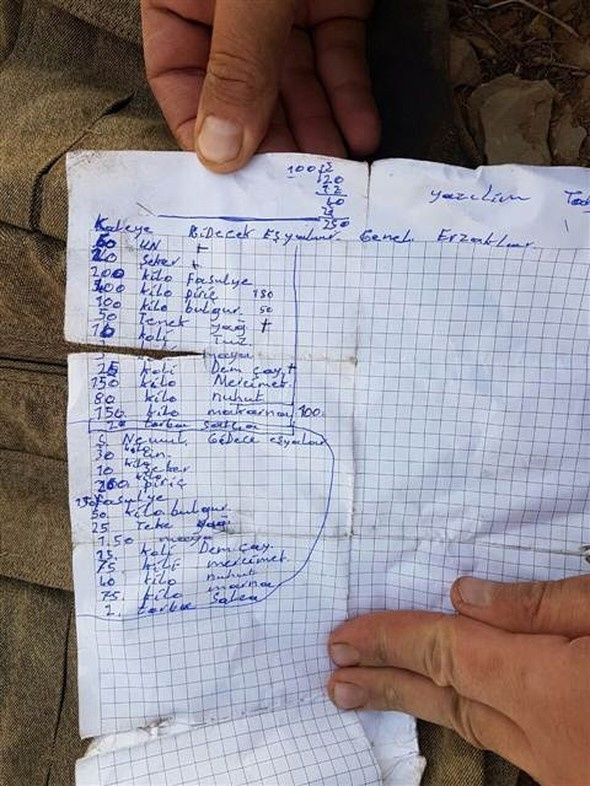 100
20
12
60
250
yazılım
Kaleye Gidecek Eşyalar. Genel Erzaklar
60 UN +
20 Şeker +
200 kilo Fasulye
100 kilo piriç 150
100 kilo bulgur. 50
50 Tenek yağ +
koli Tuz
maya
25 koli Dem çay +
150 kilo Mercimek.
80 kilo nuhut
150. kilo makarna 100.
torba salça
30 un.
10 şeker
kilo piriç
150 fasulye
50. kilo bulgur
25 Teke yağ
1.50 maya
25. koli Dem çay.
75. kilE mercimek.
40 kilo nuhut
75. kilo marna
2. torba salca